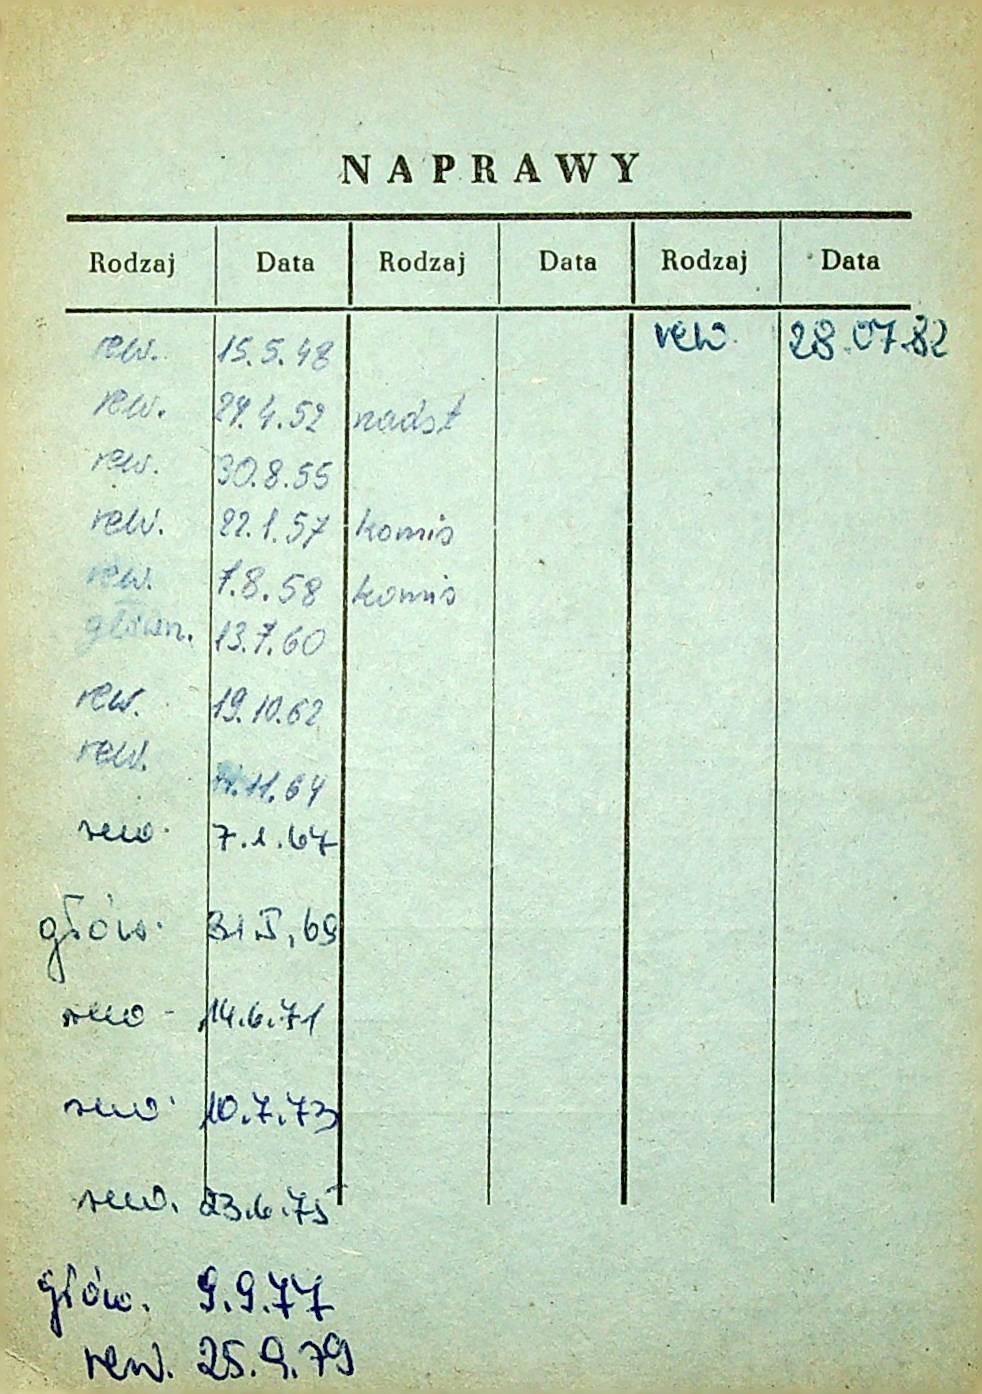 NAPRAWY
Rodzaj Data Rodzaj Data Rodzaj Data
rew. 15.5.48 rew. 28.07.82
rew. 29.4.52 nadst
rew. 30.8.55
rew. 22.1.57 komis
rew. 7.8.58 komis
główn. 13.7.60
rew. 19.10.62
rew.
11.64
rew. 7.1.67
głów. 31.I,69
rew - 14.6.71
rew. 10.7.73
rew. 23.6.75
głów. 9.9.77
rew. 25.9.79